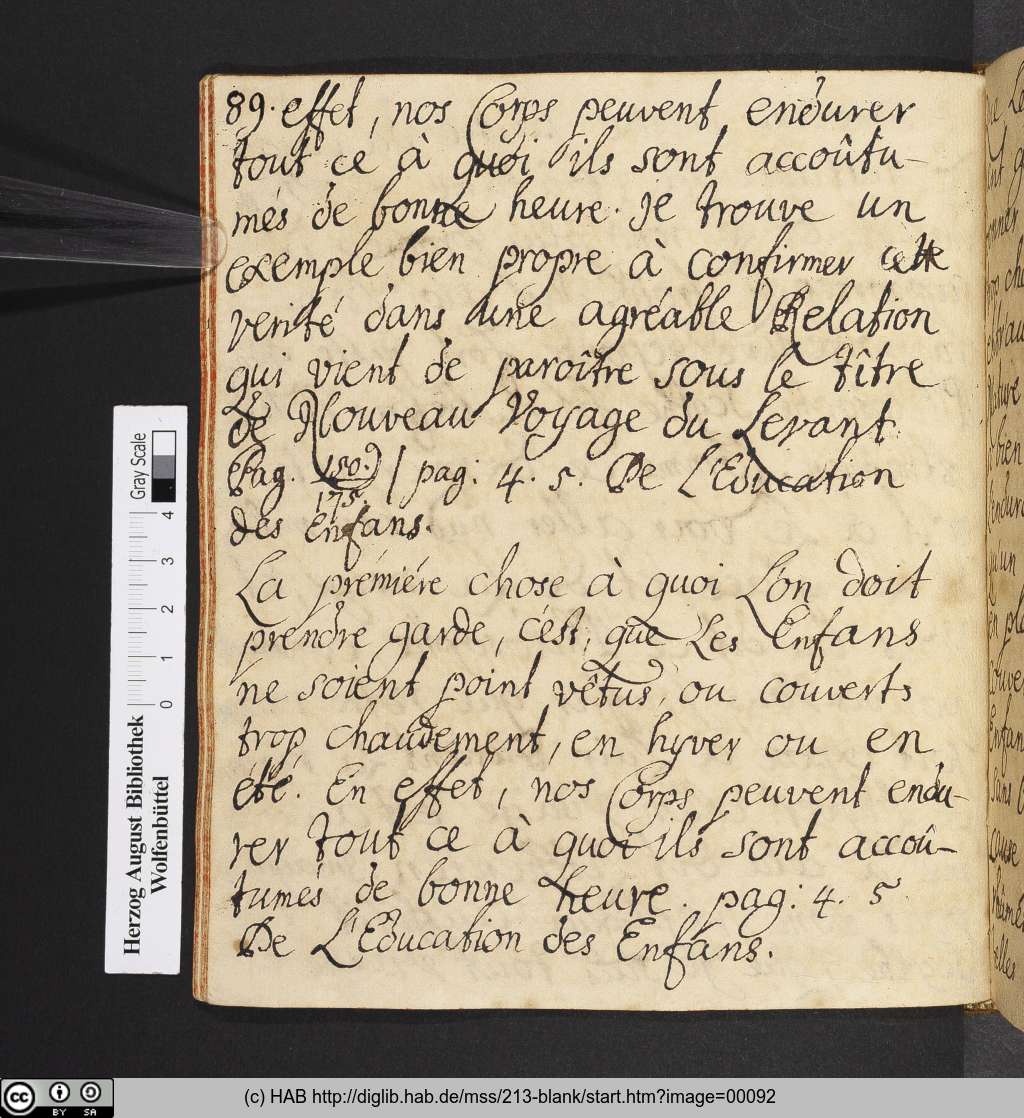 89. effet, nos Corps peuvent endurer
tout ce à quoi ils sont accoûtu-
més de bonne heure. je trouve un
exemple bien propre à confirmer cette
verité dans une agréable Relation
qui vient de paroître sous le tître
de Nouveau Voyage du Levant
Pag. 150.) / pag: 4. 5. De L'Education
175.
des Enfans.
La prémiére chose à quoi L'on doit
prendre garde, c'ést, que Les Enfans
ne soient point vêtus, ou couverts
trop chaudement, en hyver ou en
été. En effet, nos Corps peuvent endu-
rer tout ce à quoi ils sont accoû-
tumés de bonne heure. pag: 4. 5
De L'Education des Enfans.
Herzog August Bibliothek
Wolfenbüttel
Gray Scale
0 1 2 3 4
cc BY SA
(c) HAB http://diglib.hab.de/mss/213-blank/start.htm?image=00092